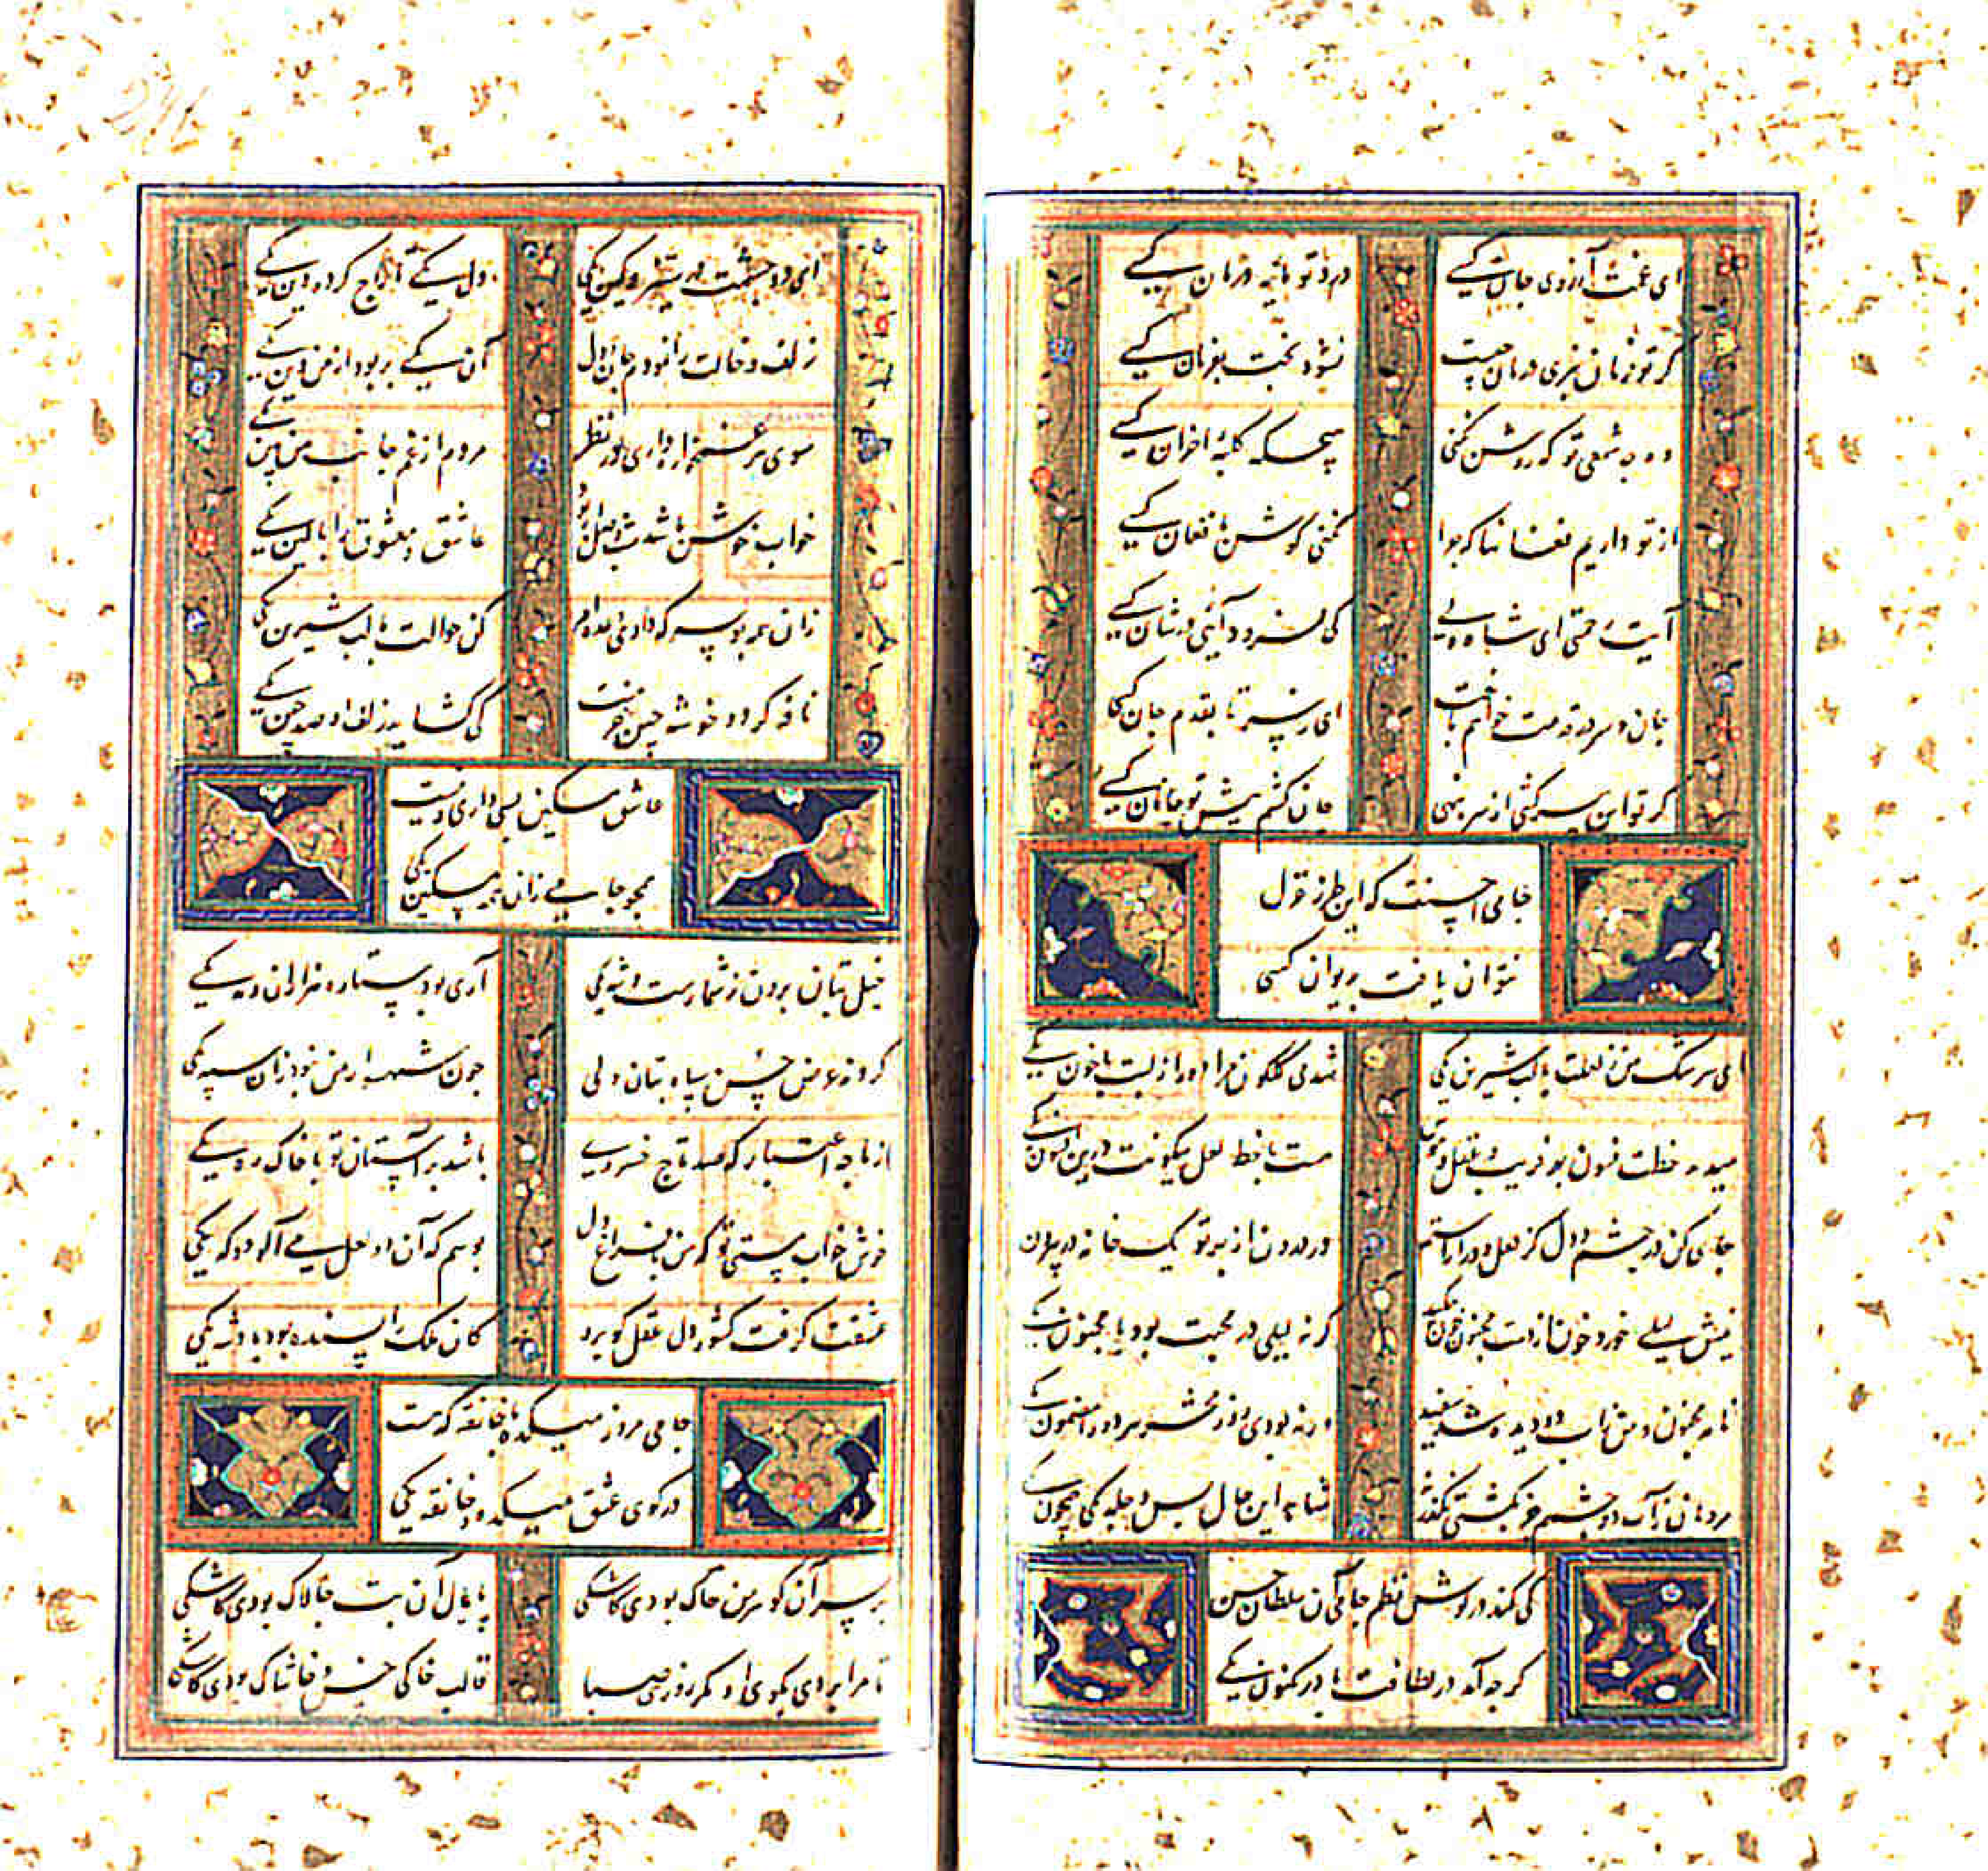 ای غمت آرزوی جان کسی
درد تو مایه درمان کسی
گر تو فرمان نبری درمان چیست
نشود بخت بفرمان کسی
وه چه شمعی تو که روشن نکنی
هیچگه کلبه احزان کسی
از تو داریم فغانها که چرا
نکنی گوش با فغان کسی
آیت رحمتی ای شاه ولی
کی فرود آئی در شان کسی
جان و سر در قدمت خواهم باخت
ای ز سر تا بقدم جان کسی
گر تو این سرکشی از سر بنهی
جان کشم پیش تو جانان کسی
جامی احسنت که این طرز غزل
نتوان یافت بدیوان کسی
ای سرشک من ز لعلت با لب شیرین یکی
شدی گلگون مرا دور از لبت با خون یکی
میدمد خطت فسون بو فریب و عقل
هست با خط لعل میگونت در این افسون یکی
جای کن در چشم و دل کز لعل و در آراستم
در درون از بهر تو یک خانه در بیرون
نیش لیلی خورد و خون از دست مجنون
گر نه لیلی در محبت بود با مجنون یکی
نامه مجنون و من از آب دیده شد سفید
ورنه بودی روز محشر هر دو را مضمون یکی
مردمان را ز آب دو چشمم جز بکشتی نگذرد
شاهد این حال بس دجله یکی جیحون یکی
کی کند در گوش نظم جامی آن سلطان حسن
گرچه آمد در لطافت با در مکنون یکی
ای دو چشمت در ستیز و کین یکی
دل یکی تاراج کرده دین یکی
زلف و خالت را نمودم جان و دل
آن یکی بربود از من این یکی
سوی هر غمخواره داری نظر
مردم از غم جانب من بین یکی
خواب خوش باشد شب وصل ار بود
عاشق و معشوق را بالین یکی
زان همه بوسه که دادی وعده‌ام
کن حوالت با لب شیرین یکی
نافه گر دو خوشه چین خرمنت
کی گشاید زلف او صد چین یکی
عاشق مسکین بسی داری و نیست
همچو جامی زان همه مسکین یکی
خیل بتان برون ز شمارست و شه یکی
آری بود ستاره هزاران و مه یکی
کردند عرض حسن سپاه بتان ولی
چون شهسوار من نبود زان سپه یکی
از ما چه اعتبار که صد تاج خسروی
باشد بر آستان تو با خاک ره یکی
خوش خواب مستی تو که من بفراغ دل
بوسم که آن دو لعل می آلود گه یکی
عشقت گرفت کشور دل عقل گو برو
کان ملک را بسنده بود پادشه یکی
جامی مرو ز میکده با خانقه که هست
در کوی عشق میکده و خانقه یکی
بر سر آن کو سر من خاک بودی کاشکی
پایمال آن بت چالاک بودی کاشکی
تا مرا بردی بکوی او مگر روزی صبا
قالب خاکی خس و خاشاک بودی کاشکی